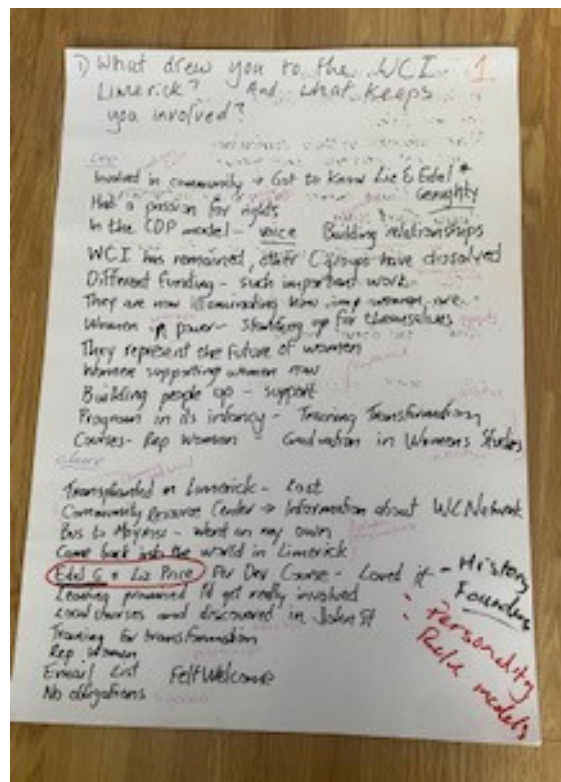 1) What drew you to the WCI 1
Limerick? And what keeps
you involved?
Involved in community → Got to know Liz & Edel *
Geraghty
Had a passion for rights
In the CDP model - voice Building relationships
WCI has remained, other C groups have dissolved
Different funding - such important work.
They are now illuminating how imp women are.
Women in power - standing up for themselves
They represent the future of women
Women supporting women now
Building people up - support
Program in its infancy - Training Transformation
Courses - Rep Women - Graduation in Womens Studies
Transplanted in Limerick - Lost
Community Resource Center → Information about WC Network
Bus to - Went on my own
Came back into the world in Limerick
Edel G + Liz Price Per Dev Course - Loved it - History
Founders
Leaving promised I'd get really involved
Local courses and discovered in John St
: Personality
Role models
Training for transformation
Rep Women
Email List Felt Welcome
No obligations